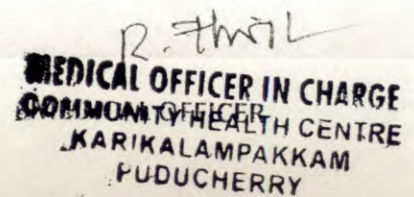 MEDICAL OFFICER IN CHARGE
COMMUNITY HEALTH CENTRE
OFFICER
KARIKALAMPAKKAM
PUDUCHERRY